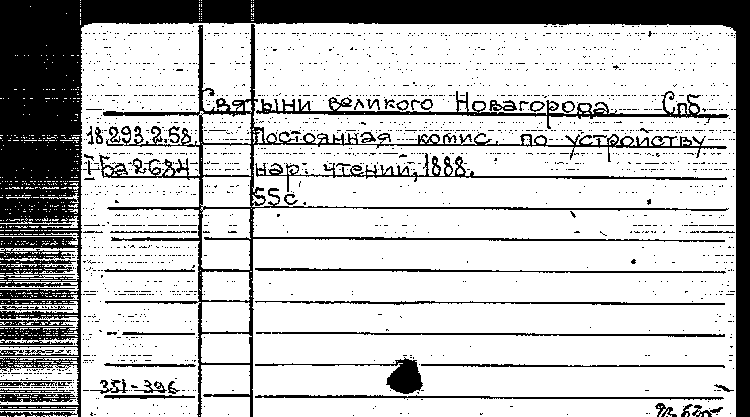 Святыни великого Новагорода. Спб.,
18.293.2.58. Постоянная комис. по устройству
нар. чтений, 1888.
55с.
351-396